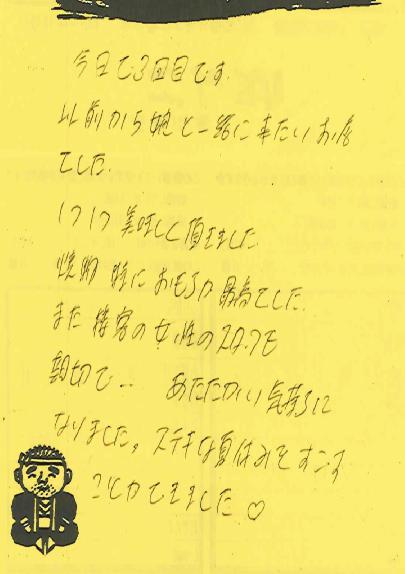 今日で3回目です。
以前から娘と一緒に来たいお店
でした。
1つ1つ美味しく頂きました
焼物 特におもちが最高でした。
また 接客の女性のスタッフも
親切で… あたたかい気持ちに
なりました。ステキな夏休みをすごす
ことができました♡